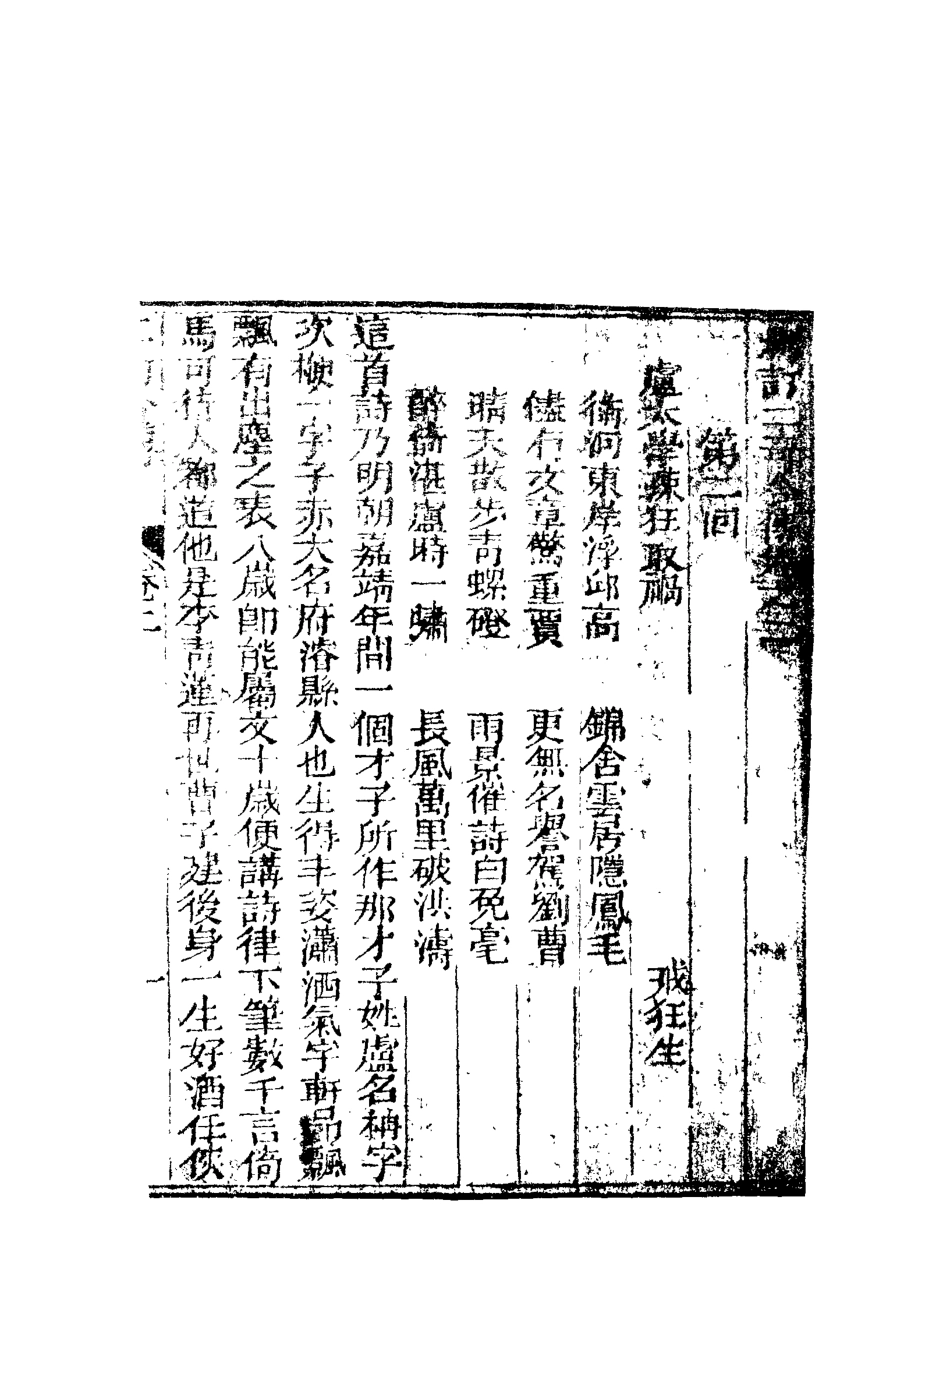 訂二奇合傳卷之二
第二回
盧太學疎狂取禍　戒狂生
衛河東岸浮邱高　錦舍雲居隱鳳毛
儘有文章驚重賈　更無名譽駕劉曹
晴天散步青螺磴　雨景催詩白兔毫
醉倚湛盧時一嘯　長風萬里破洪濤
這首詩乃明朝嘉靖年間一個才子所作那才子姓盧名柟字
次楩一字子赤大名府濬縣人也生得丰姿瀟洒氣宇軒昂飄
飄有出塵之表八歲即能屬文十歲便講詩律下筆數千言倚
馬可待人都道他是李青蓮再世曹子建後身一生好酒任俠
卷二　一